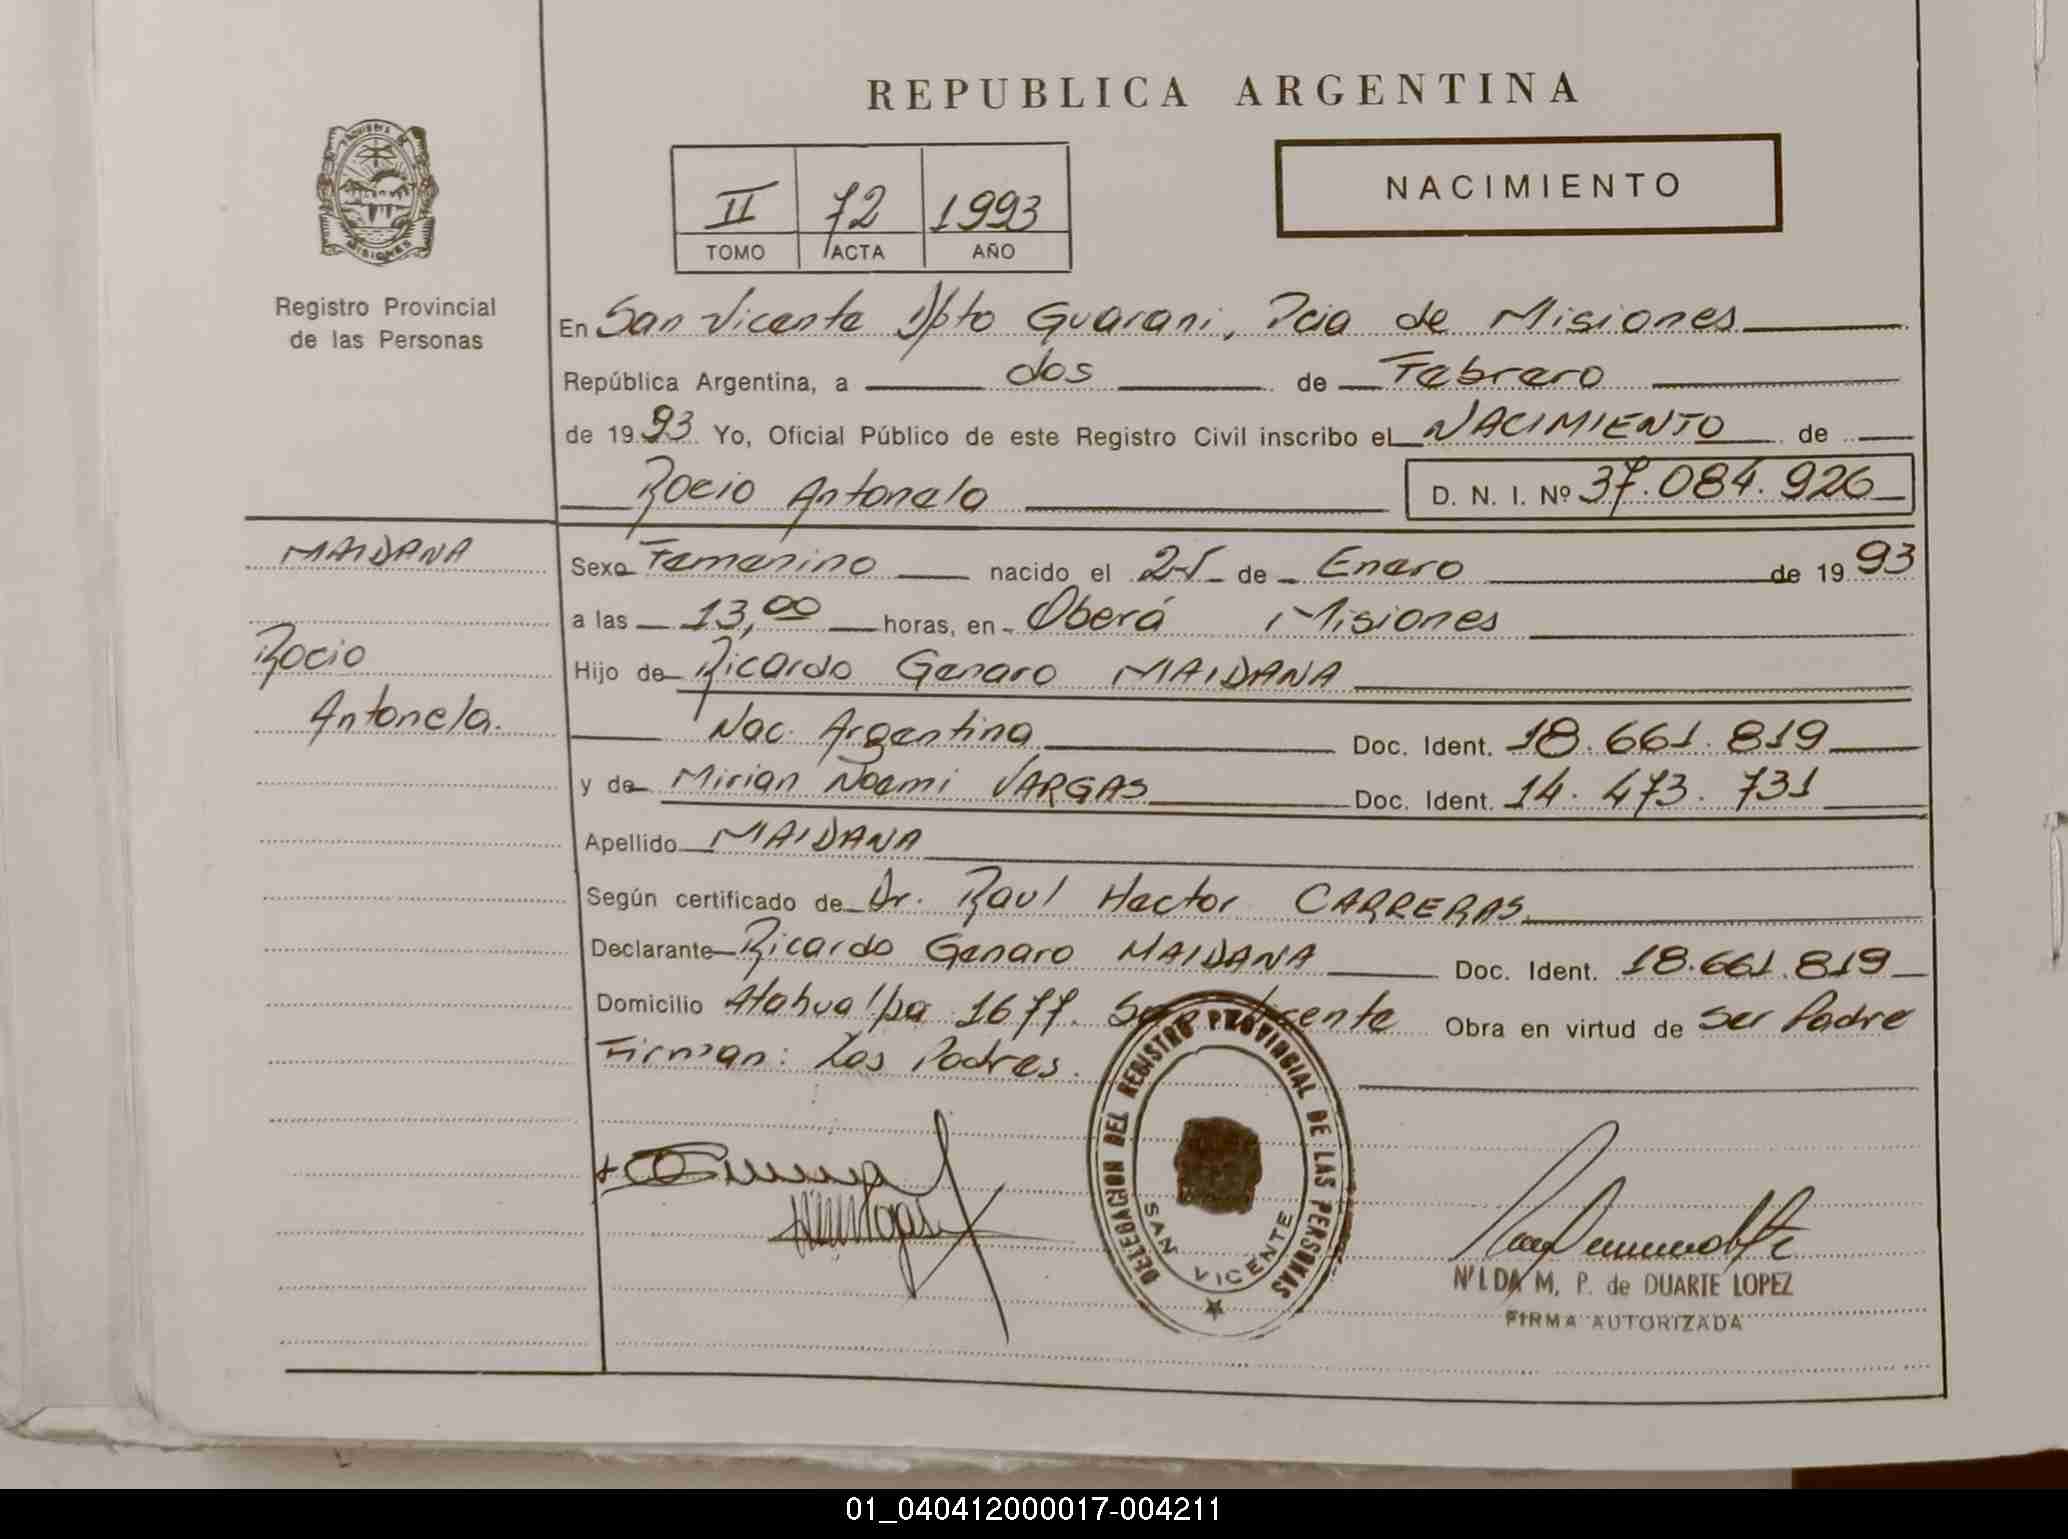 REPUBLICA ARGENTINA
PROVINCIA DE MISIONES
Registro Provincial
de las Personas
II 72 1993
TOMO ACTA AÑO
NACIMIENTO
En San Vicente Dpto Guarani, Pcia de Misiones
República Argentina, a dos de Febrero
de 1993 Yo, Oficial Público de este Registro Civil inscribo el NACIMIENTO de
Rocio Antonela D. N. I. Nº 37.084.926
MAIDANA
Rocio
Antonela.
Sexo Femenino nacido el 25 de Enero de 1993
a las 13,00 horas, en Oberá Misiones
Hijo de Ricardo Genaro MAIDANA
Nac. Argentina Doc. Ident. 18.661.819
y de Mirian Noemi VARGAS Doc. Ident. 14.473.731
Apellido MAIDANA
Según certificado de Dr. Raul Hector CARRERAS
Declarante Ricardo Genaro MAIDANA Doc. Ident. 18.661.819
Domicilio Atahualpa 1677. San Vicente Obra en virtud de Ser Padre
Firman: Los Padres.
DELEGACION DEL REGISTRO PROVINCIAL DE LAS PERSONAS
SAN VICENTE
NILDA M. P. de DUARTE LOPEZ
FIRMA AUTORIZADA
01_040412000017-004211